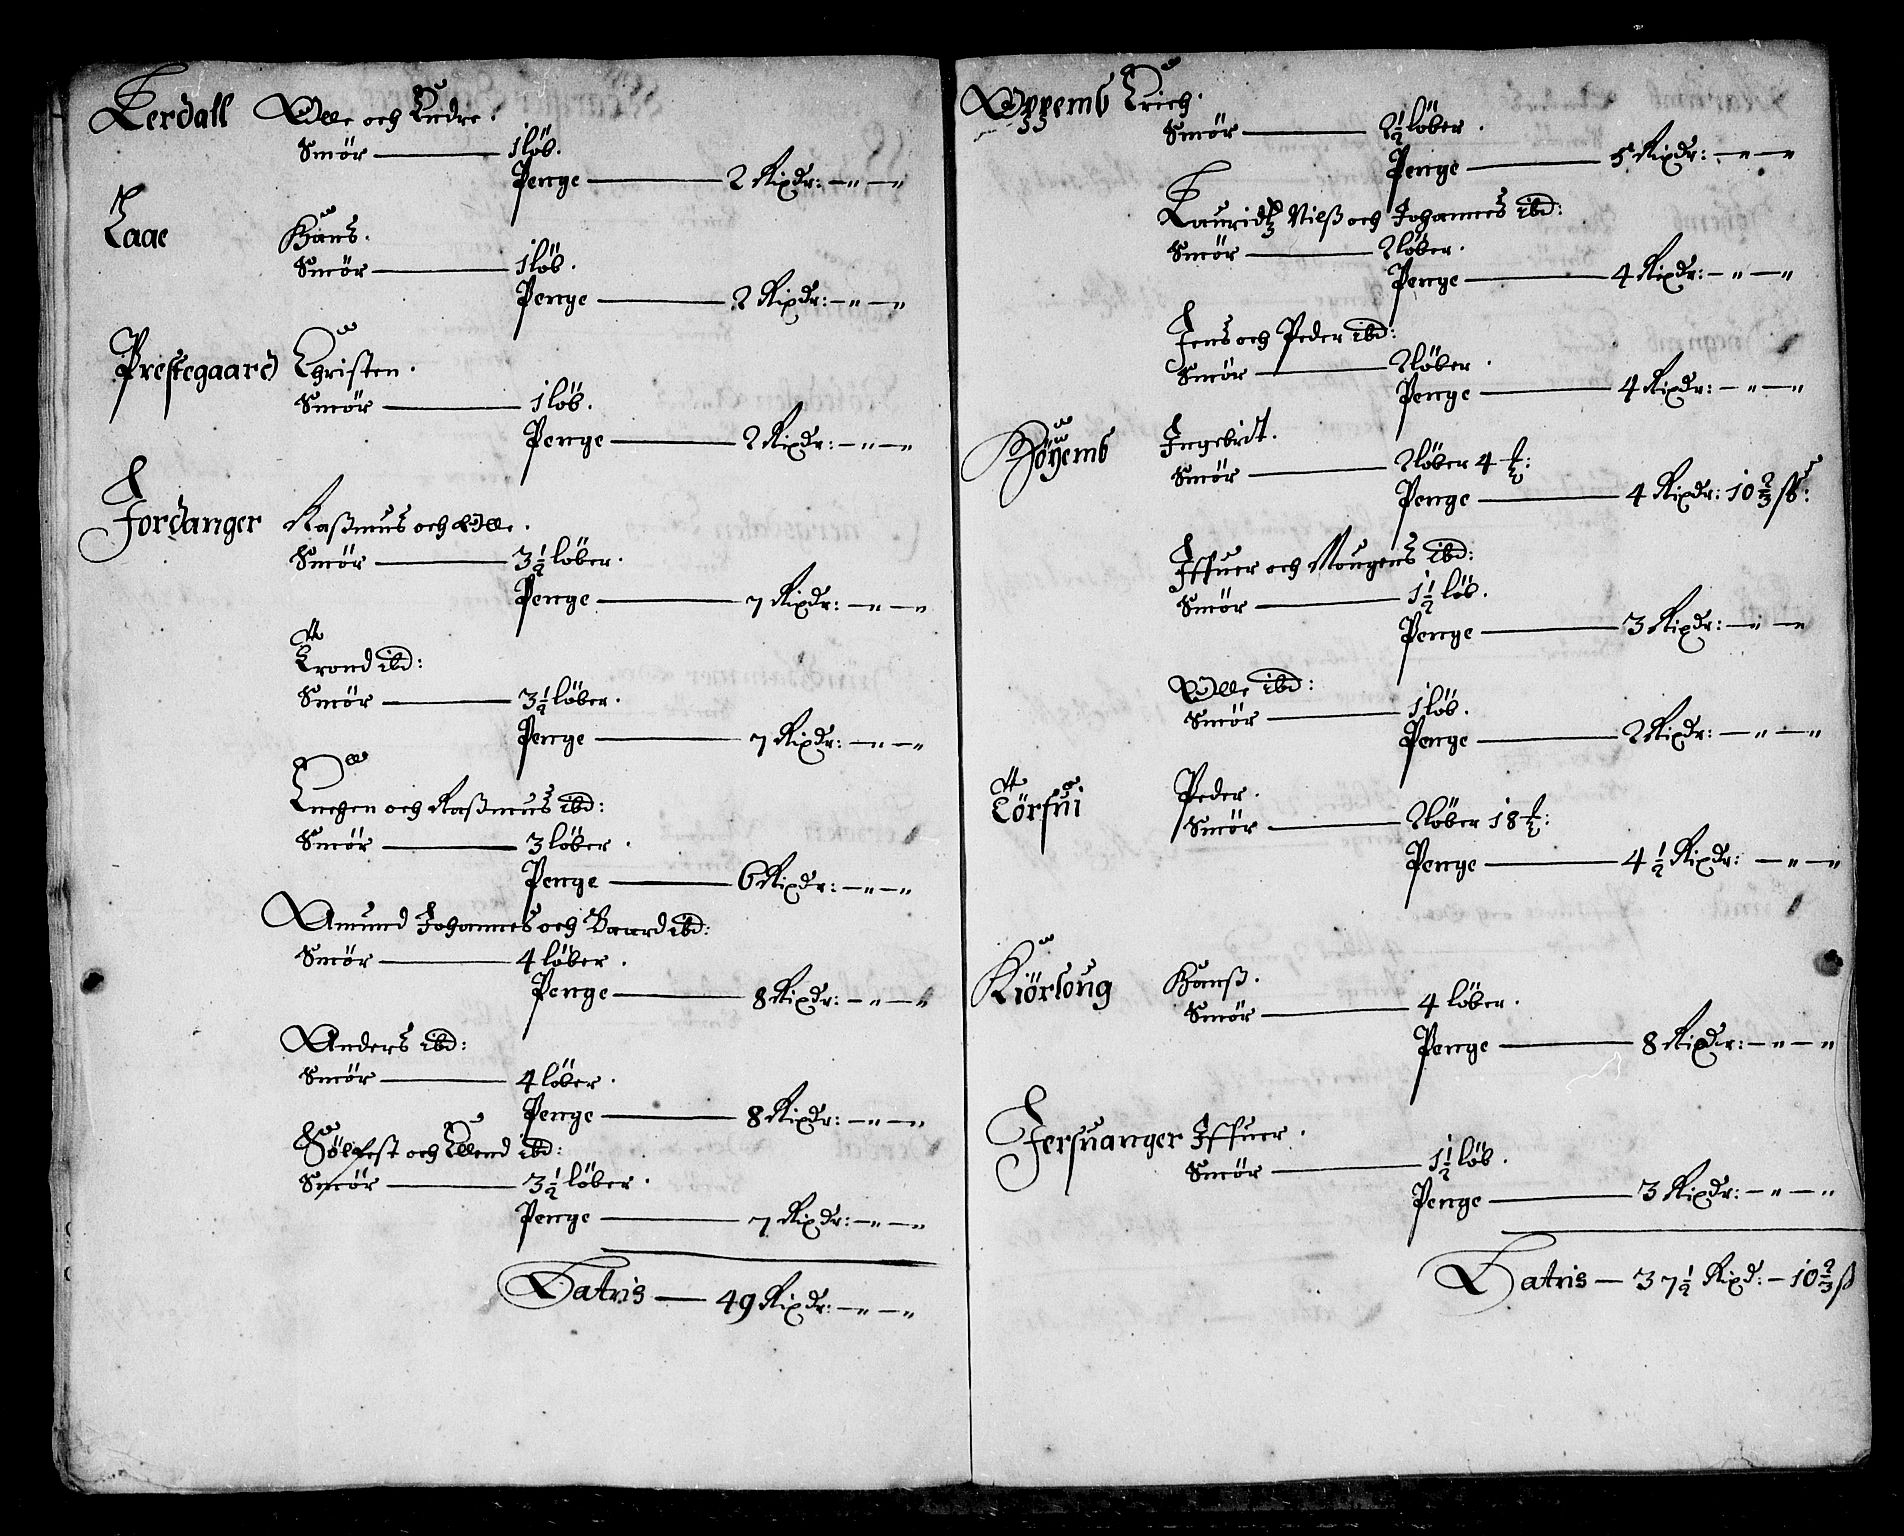 Lerdall Olle och Endre.
Smör — 1 löb.
Penge — 2 Rixdr: — " — "
Laae Hans.
Smör — 1 löb.
Penge — 2 Rixdr: — " — "
Prestegaard Christen.
Smör — 1 löb.
Penge — 2 Rixdr: — " — "
Jordanger Raßmus och Olle.
Smör — 3½ löber.
Penge — 7 Rixdr: — " — "
Trond ibd:
Smör — 3½ löber.
Penge — 7 Rixdr: — " — "
och Raßmus ibd:
Smör — 3 löber.
Penge — 6 Rixdr: — " — "
Amund Johannes och Baard ibd:
Smör — 4 löber.
Penge — 8 Rixdr: — " — "
Anders ibd:
Smör — 4 löber.
Penge — 8 Rixdr: — " — "
Sölfest och Ellend ibd:
Smör — 3½ löber.
Penge — 7 Rixdr: — " — "
Latris — 49 Rixdr: — " — "
Oppemb Erich.
Smör — 2½ löber.
Penge — 5 Rixdr: — " — "
Lauridtz Nilß och Johannes ibd:
Smör — 2 löber.
Penge — 4 Rixdr: — " — "
Jens och Peder ibd:
Smör — 2 löber.
Penge — 4 Rixdr: — " — "
Höyemb Ingebrdt.
Smör — 2 löber 4 ℔:
Penge — 4 Rixdr: 10⅔ ß:
Iffuer och Mougens ibd:
Smör — 1½ löb.
Penge — 3 Rixdr: — " — "
Olle ibd:
Smör — 1 löb.
Penge — 2 Rixdr: — " — "
Törfui Peder.
Smör — 2 löber 18 ℔:
Penge — 4½ Rixdr: — " — "
Kiörloug Hanß.
Smör — 4 löber.
Penge — 8 Rixdr: — " — "
Jersuanger Iffuer.
Smör — 1½ löb.
Penge — 3 Rixdr: — " — "
Latris — 37½ Rixd: — 10⅔ ß